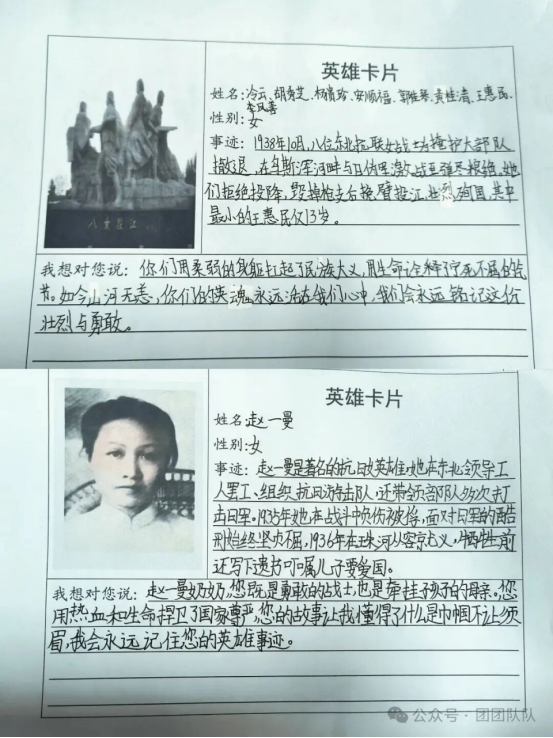 英雄卡片
姓名:冷云、胡秀芝、杨贵珍、安顺福、郭桂琴、黄桂清、王惠民、
李凤善
性别:女
事迹:1938年10月,八位东北抗联女战士为掩护大部队
撤退,在乌斯浑河畔与日伪军激战至弹尽粮绝,她
们拒绝投降,毁掉枪支后挽臂投江,壮烈殉国,其中
最小的王惠民仅13岁。
八女投江
我想对您说:你们用柔弱的身躯扛起了民族大义,用生命诠释了宁死不屈的气
节。如今山河无恙,你们的英魂永远活在我们心中,我们会永远铭记这份
壮烈与勇敢。
英雄卡片
姓名:赵一曼
性别:女
事迹:赵一曼是著名的抗日女英雄,她在东北领导工
人罢工、组织抗日游击队,还带领部队多次打
击日军。1935年她在战斗中负伤被俘,面对日军的酷
刑始终坚贞不屈,1936年在珠河从容就义,牺牲前
还写下遗书叮嘱儿子要爱国。
我想对您说:赵一曼奶奶,您既是勇敢的战士,也是牵挂孩子的母亲。您
用热血和生命捍卫了国家尊严,您的故事让我懂得了什么是巾帼不让须
眉,我会永远记住您的英雄事迹。
公众号·团团队队